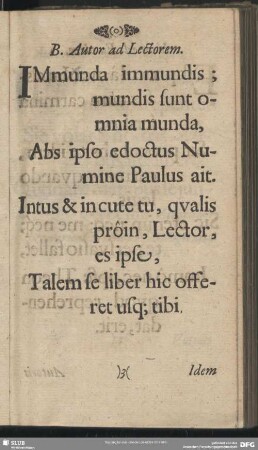 B. Autor ad Lectorem.
IMmunda immundis;
mundis sunt o-
mnia munda,
Abs ipso edoctus Nu-
mine Paulus ait.
Intus & in cute tu, qvalis
pròin, Lector,
es ipse,
Talem se liber hic offe-
ret usq; tibi.
)3(
Idem
SLUB
DFG